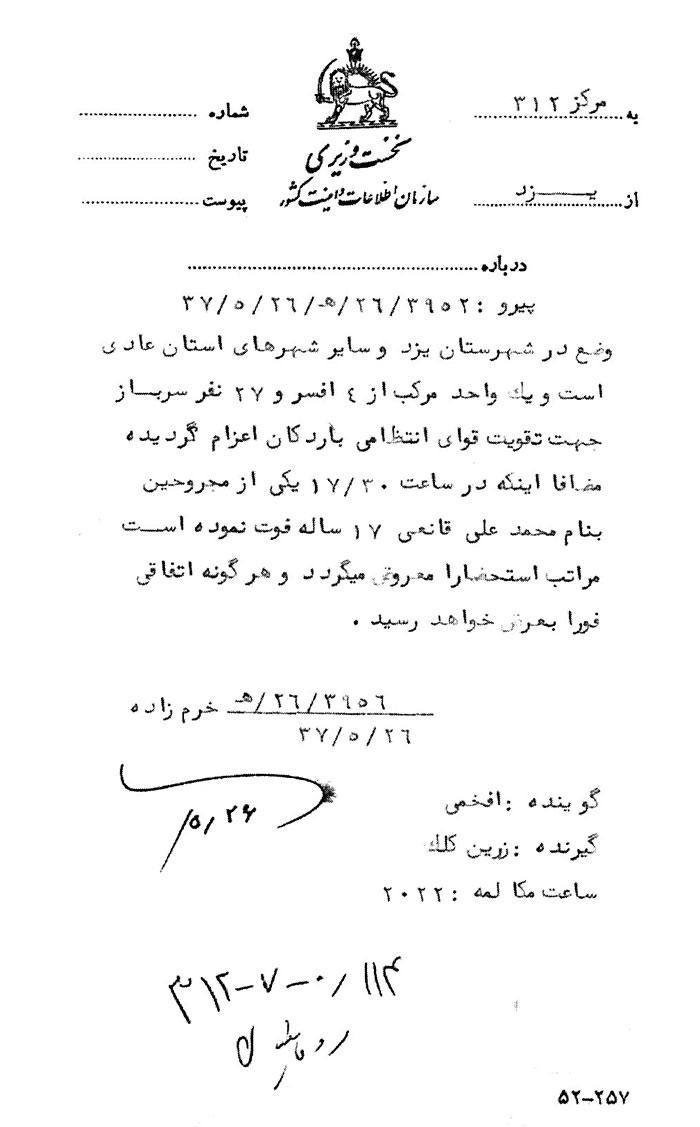 به مرکز ۳۱۲
شماره
نخست وزیری
تاریخ
از یـــزد
سازمان اطلاعات و امنیت کشور
پیوست
درباره
پیرو : ۳۹۵۲/۲٦/هـ/۳۷/۵/۲٦
وضع در شهرستان یزد و سایر شهرهای استان عادی
است و یك واحد مرکب از ٤ افسر و ۲۷ نفر سربـاز
جهت تقویت قوای انتظامی باردکان اعزام گردیده
مضافا اینکه در ساعت ۱۷/۳۰ یکی از مجروحین
بنام محمد علی قانعی ۱۷ ساله فوت نموده اسـت
مراتب استحضارا معروض میگردد و هرگونه اتفاقی
فورا بعرض خواهد رسید .
۳۹۵٦/۲٦/هـ خرم زاده
۳۷/۵/۲٦
گوینده : افخمی
۵/۲۶
گیرنده : زرین کلك
ساعت مکالمه : ۲۰۲۲
۳۱۲-۷-۰/۱۱۴
۵۲-۲۵۷